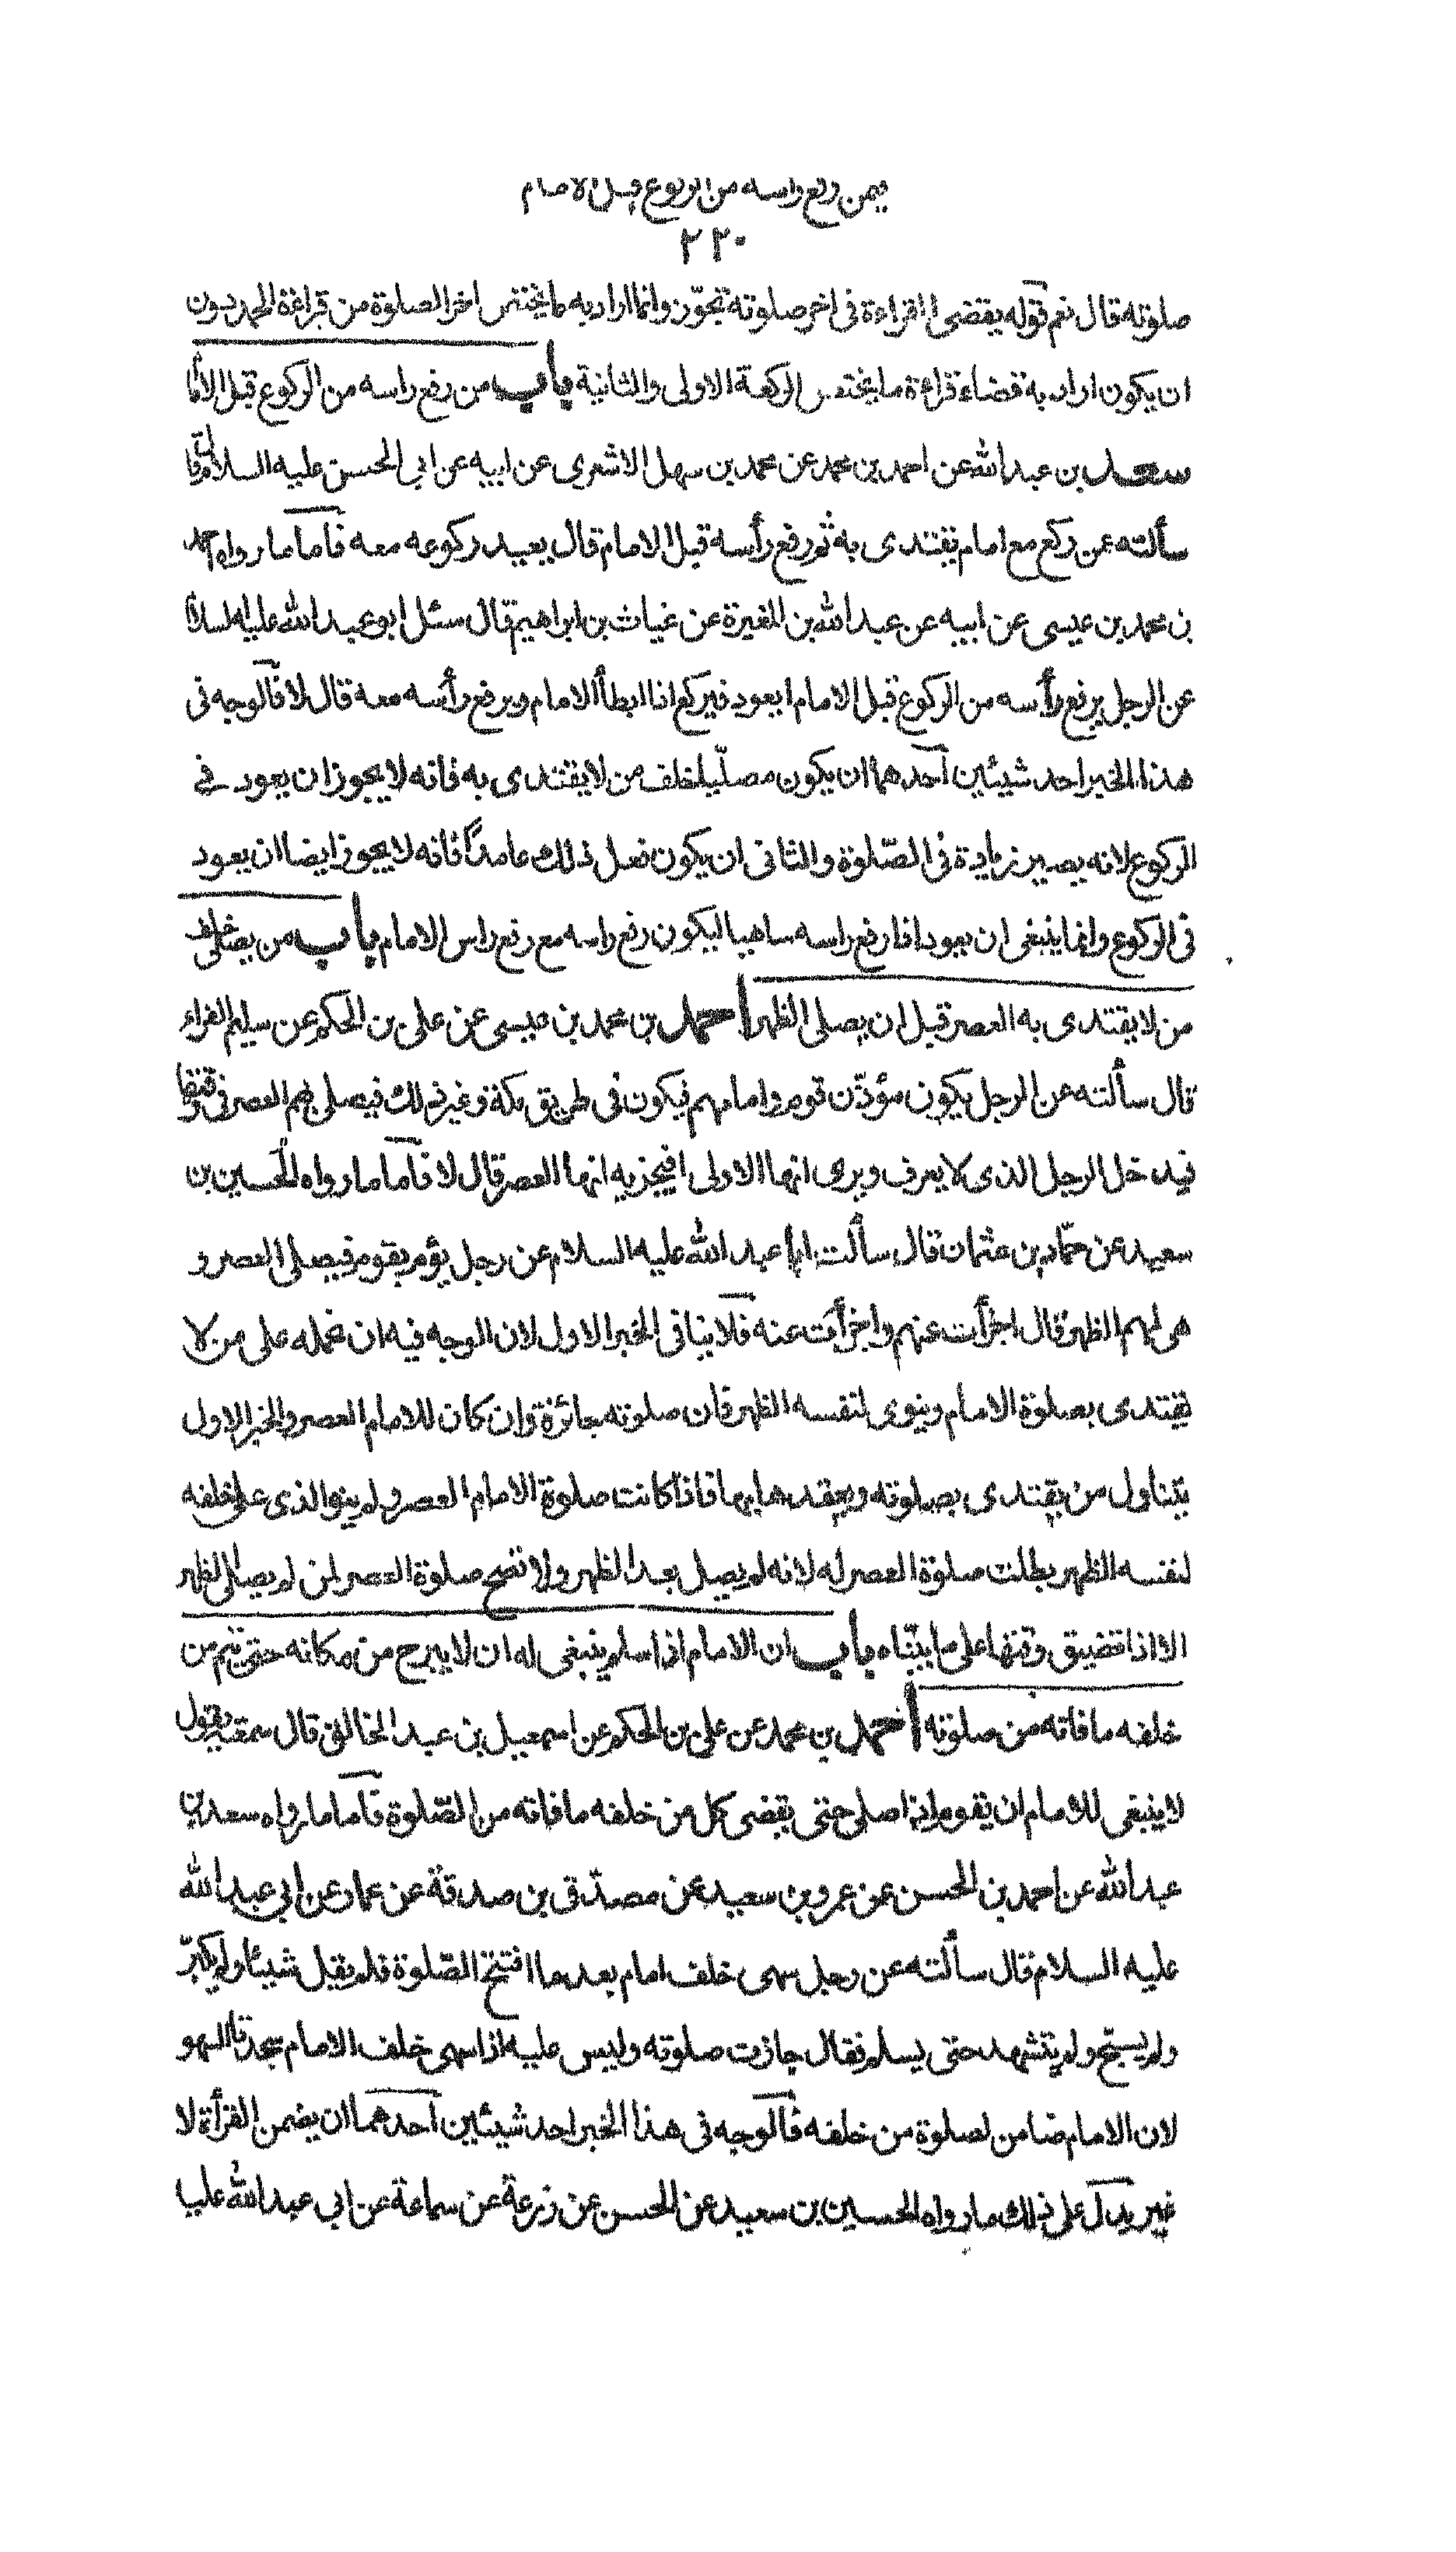 فيمن رفع راسه من الركوع قبل الامام
٢٢٠
صلوته قال نعم قوله يقضى القراءة فى اخر صلوته تجوّز وانما اراد به ما يختص اخر الصلوة من قراءة الحمد دون
ان يكون اراد به قضاء قراءة ما يختص الركعة الاولى والثانية باب من رفع راسه من الركوع قبل الاما
سعد بن عبد الله عن احمد بن محمد عن محمد بن سهل الاشعرى عن ابيه عن ابى الحسن عليه السلام قا
سألته عمن ركع مع امام يقتدى به ثم رفع رأسه قبل الامام قال يعيد ركوعه معه فاما ما رواه احمد
بن محمد بن عيسى عن ابيه عن عبد الله بن المغيرة عن غياث بن ابراهيم قال سئل ابو عبد الله عليه السلا
عن الرجل يرفع رأسه من الركوع قبل الامام ايعود فيركع اذا ابطأ الامام ويرفع رأسه معه قال لا فالوجه فى
هذا الخبر احد شيئين احدهما ان يكون مصلّيا خلف من لا يقتدى به فانه لا يجوز ان يعود فى
الركوع لانه يصير زيادة فى الصّلوة والثانى ان يكون فعل ذلك عامداً فانه لا يجوز ايضا ان يعود
فى الركوع وانما ينبغى ان يعود اذا رفع راسه ساهيا ليكون رفع راسه مع رفع راس الامام باب من يصلى خلف
من لا يقتدى به العصر قبل ان يصلى الظهر احمد بن محمد بن عيسى عن على بن الحكم عن سليم الفراء
قال سألته عن الرجل يكون مؤذّن قوم وامامهم فيكون فى طريق مكة وغير ذلك فيصلى بهم العصر فى وقتها
فيدخل الرجل الذى لا يعرف ويرى انها الاولى افيجزيه انها العصر قال لا فاما ما رواه الحسين بن
سعيد عن حمّاد بن عثمان قال سألت ابا عبد الله عليه السلام عن رجل يؤم بقوم فيصلى العصر و
هى لهم الظهر قال اجزأت عنهم واجزأت عنه فلا ينافى الخبر الاول لان الوجه فيه ان نحمله على من لا
يقتدى بصلوة الامام وينوى لنفسه الظهر فان صلوته جائزة وان كان للامام العصر والخبر الاول
يتناول من يقتدى بصلوته ويعقدها بها فاذا كانت صلوة الامام العصر ولم ينو الذى على خلفه
لنفسه الظهر بطلت صلوة العصر له لانه لم يصل بعد الظهر ولا تصح صلوة العصر لمن لم يصل الظهر
الا اذا تضيق وقتها على ما بيّنّاه باب ان الامام اذا سلم ينبغى له ان لا يبرح من مكانه حتى يتم من
خلفه ما فاته من صلوته احمد بن محمد عن على بن الحكم عن اسمعيل بن عبد الخالق قال سمعته يقول
لا ينبغى للامام ان يقوم اذا صلى حتى يقضى كل من خلفه ما فاته من الصّلوة فاما ما رواه سعد بن
عبد الله عن احمد بن الحسن عن عمرو بن سعيد عن مصدّق بن صدقة عن عمار عن ابى عبد الله
عليه السلام قال سألته عن رجل سهى خلف امام بعد ما افتتح الصّلوة فلم يقل شيئا ولم يكبّر
ولم يسبّح ولم يتشهد حتى يسلم فقال جازت صلوته وليس عليه اذا سهى خلف الامام سجدتا السهو
لان الامام ضامن لصلوة من خلفه فالوجه فى هذا الخبر احد شيئين احدهما ان يضمن القرأة لا
غير يدل على ذلك ما رواه الحسين بن سعيد عن الحسن عن زرعة عن سماعة عن ابى عبد الله عليا